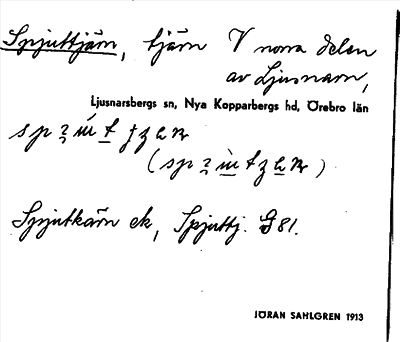 Spjuttjärn, tjärn V norra delen
av Ljusnarn,
Ljusnarsbergs sn, Nya Kopparbergs hd, Örebro län
Spjutkärn ek, Spjuttj. G 81.
JÖRAN SAHLGREN 1913